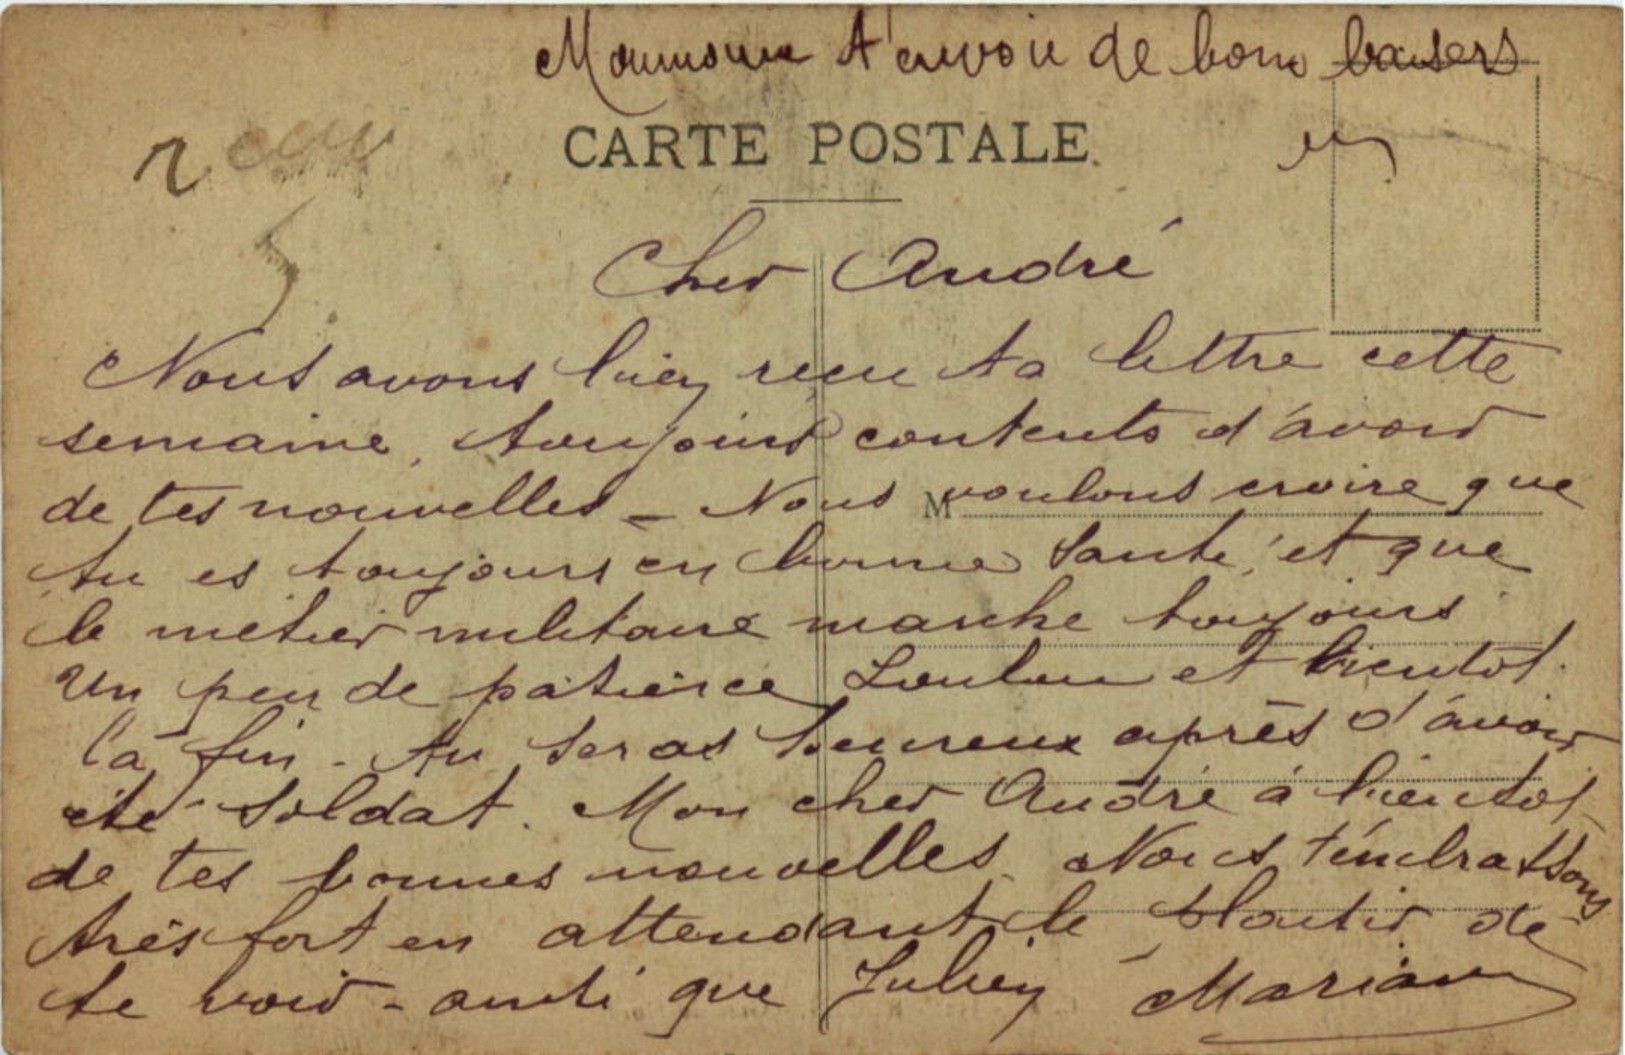 Moumoune t'envoie de bons baisers
CARTE POSTALE
Cher André
Nous avons bien reçu ta lettre cette
semaine, toujours contents d'avoir
de tes nouvelles - Nous voulons croire que
M
tu es toujours en bonne santé, et que
le métier militaire marche toujours
Un peu de patience Loulou et bientot
la fin - tu seras heureux après d'avoir
été soldat. Mon cher André à bientot
de tes bonnes nouvelles. Nous t'embrassons
très fort en attendant le plaisir de
te voir - ainsi que Julien Marian